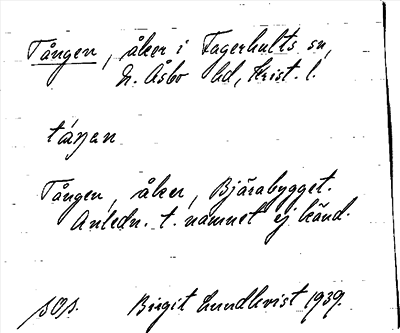 Tången, åker i Fagerhults sn,
N. Åsbo hd, Krist. l.
táŋən
Tången, åker, Bjärabygget.
Anledn. t. namnet ej känd.
sos. Birgit Lundkvist 1939.